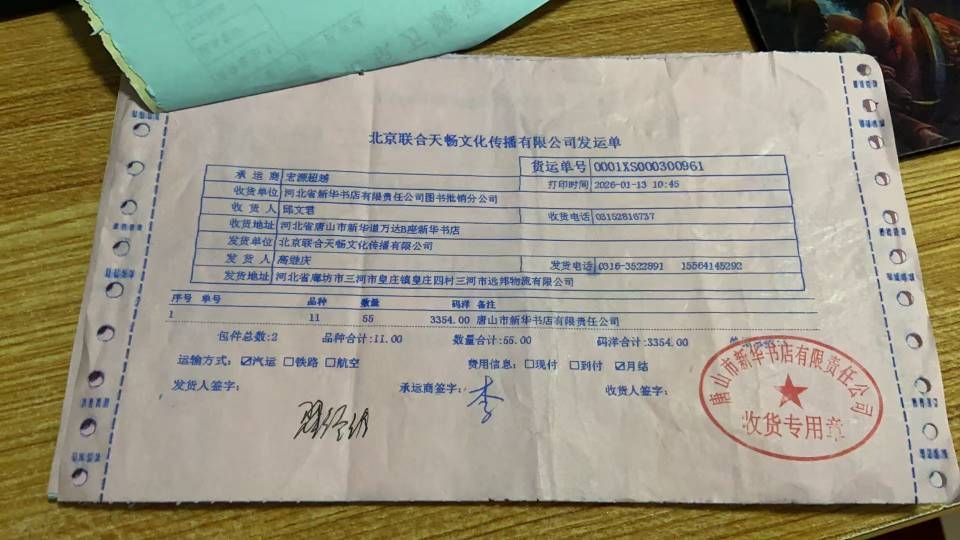 北京联合天畅文化传播有限公司发运单
货运单号 0001XS000300961
承运商 宏源超越
打印时间 2026-01-13 10:45
收货单位 河北省新华书店有限责任公司图书批销分公司
收货人 邱文君 收货电话 03152816737
收货地址 河北省唐山市新华道万达B座新华书店
发货单位 北京联合天畅文化传播有限公司
发货人 高继庆 发货电话 0316-3522891 15564145292
发货地址 河北省廊坊市三河市皇庄镇皇庄四村三河市远邦物流有限公司
序号 单号 品种 数量 码洋 备注
1 11 55 3354.00 唐山市新华书店有限责任公司
包件总数:2 品种合计:11.00 数量合计:55.00 码洋合计:3354.00
运输方式: ☑汽运 □铁路 □航空 费用信息: □现付 □到付 ☑月结
发货人签字: 承运商签字: 李 收货人签字:
唐山市新华书店有限责任公司
收货专用章